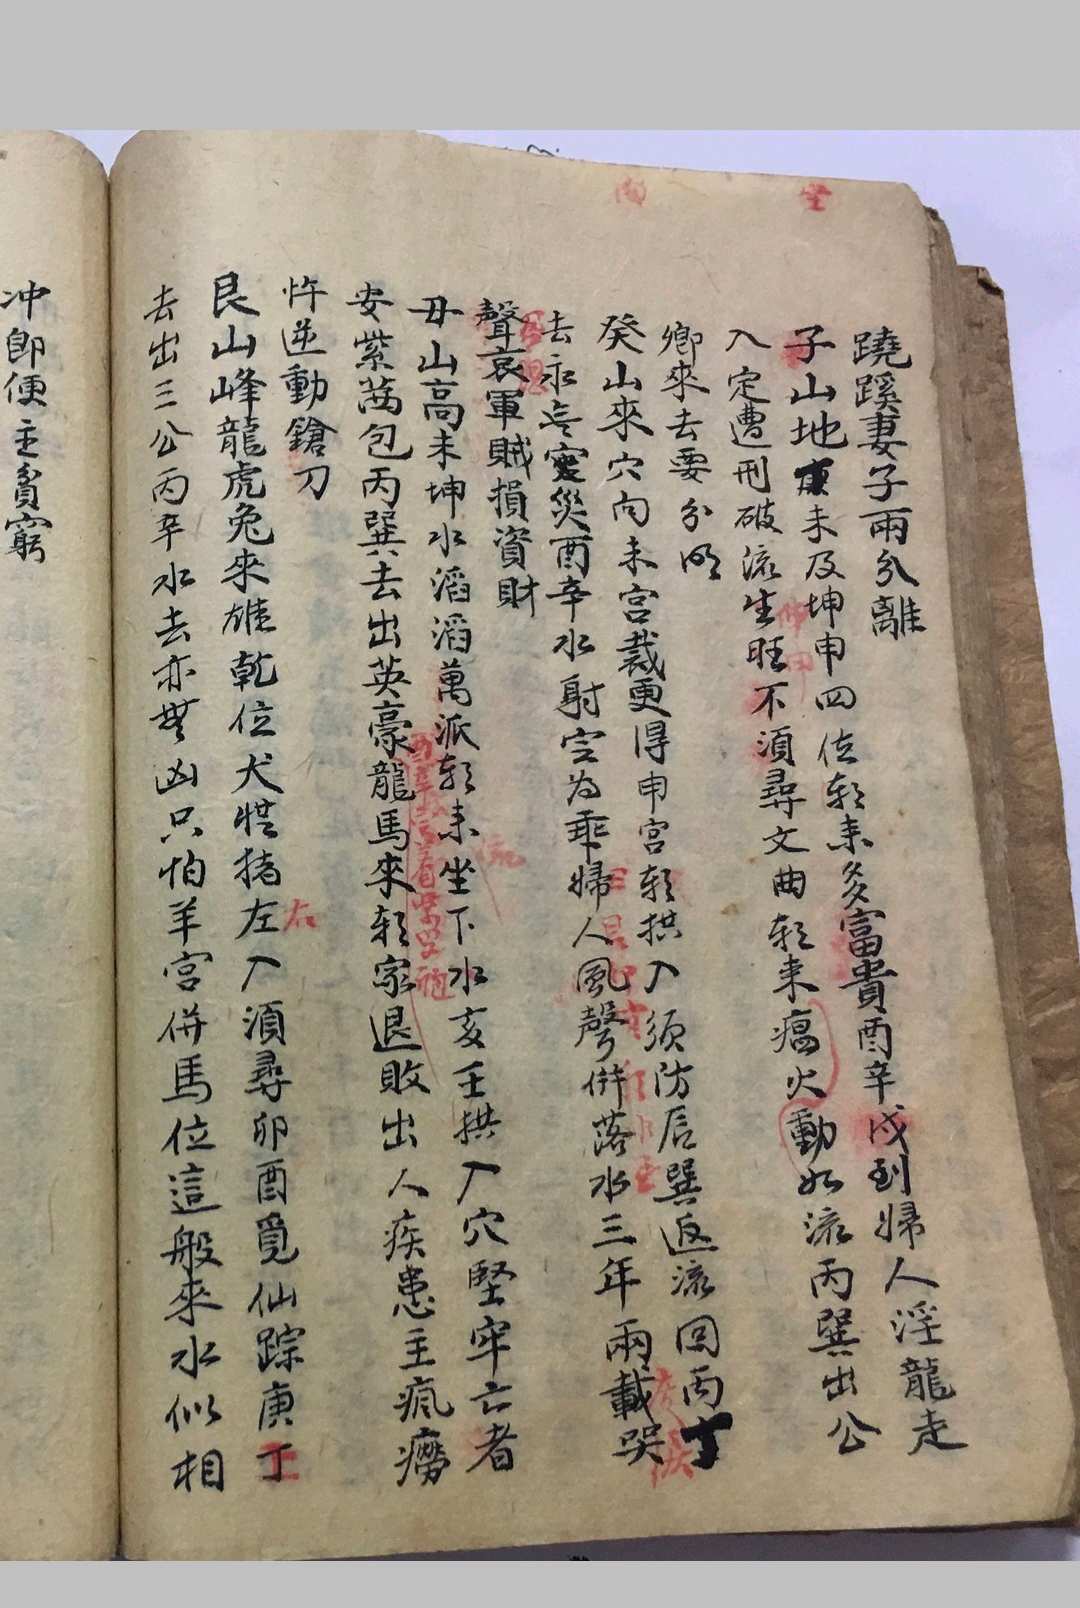 蹺蹊妻子兩分離
子山地未及坤申四位朝来多富貴酉辛戌到婦人淫龍走
入定遭刑破流生旺不須尋文曲朝来瘟火動如流丙巽出公
卿來去要分明
癸山來穴向未宮裁更得申宮朝拱入須防辰巽返流囬丙丁
去永無灾災酉辛水射定为乖婦人風聲併落水三年兩載哭
聲哀軍賊損資財
丑山高未坤水滔滔萬派朝来坐下水亥壬拱入穴堅牢亡者
安紫茜包丙巽去出英豪龍馬來朝家退敗出人疾患主瘋癆
忤逆動鎗刀
艮山峰龍虎兔來雄乾位犬怪猪左入須尋卯酉覓仙踪庚丁
去出三公丙辛水去亦無凶只怕羊宮併馬位這般來水似相
冲即便主貧窮
右
流